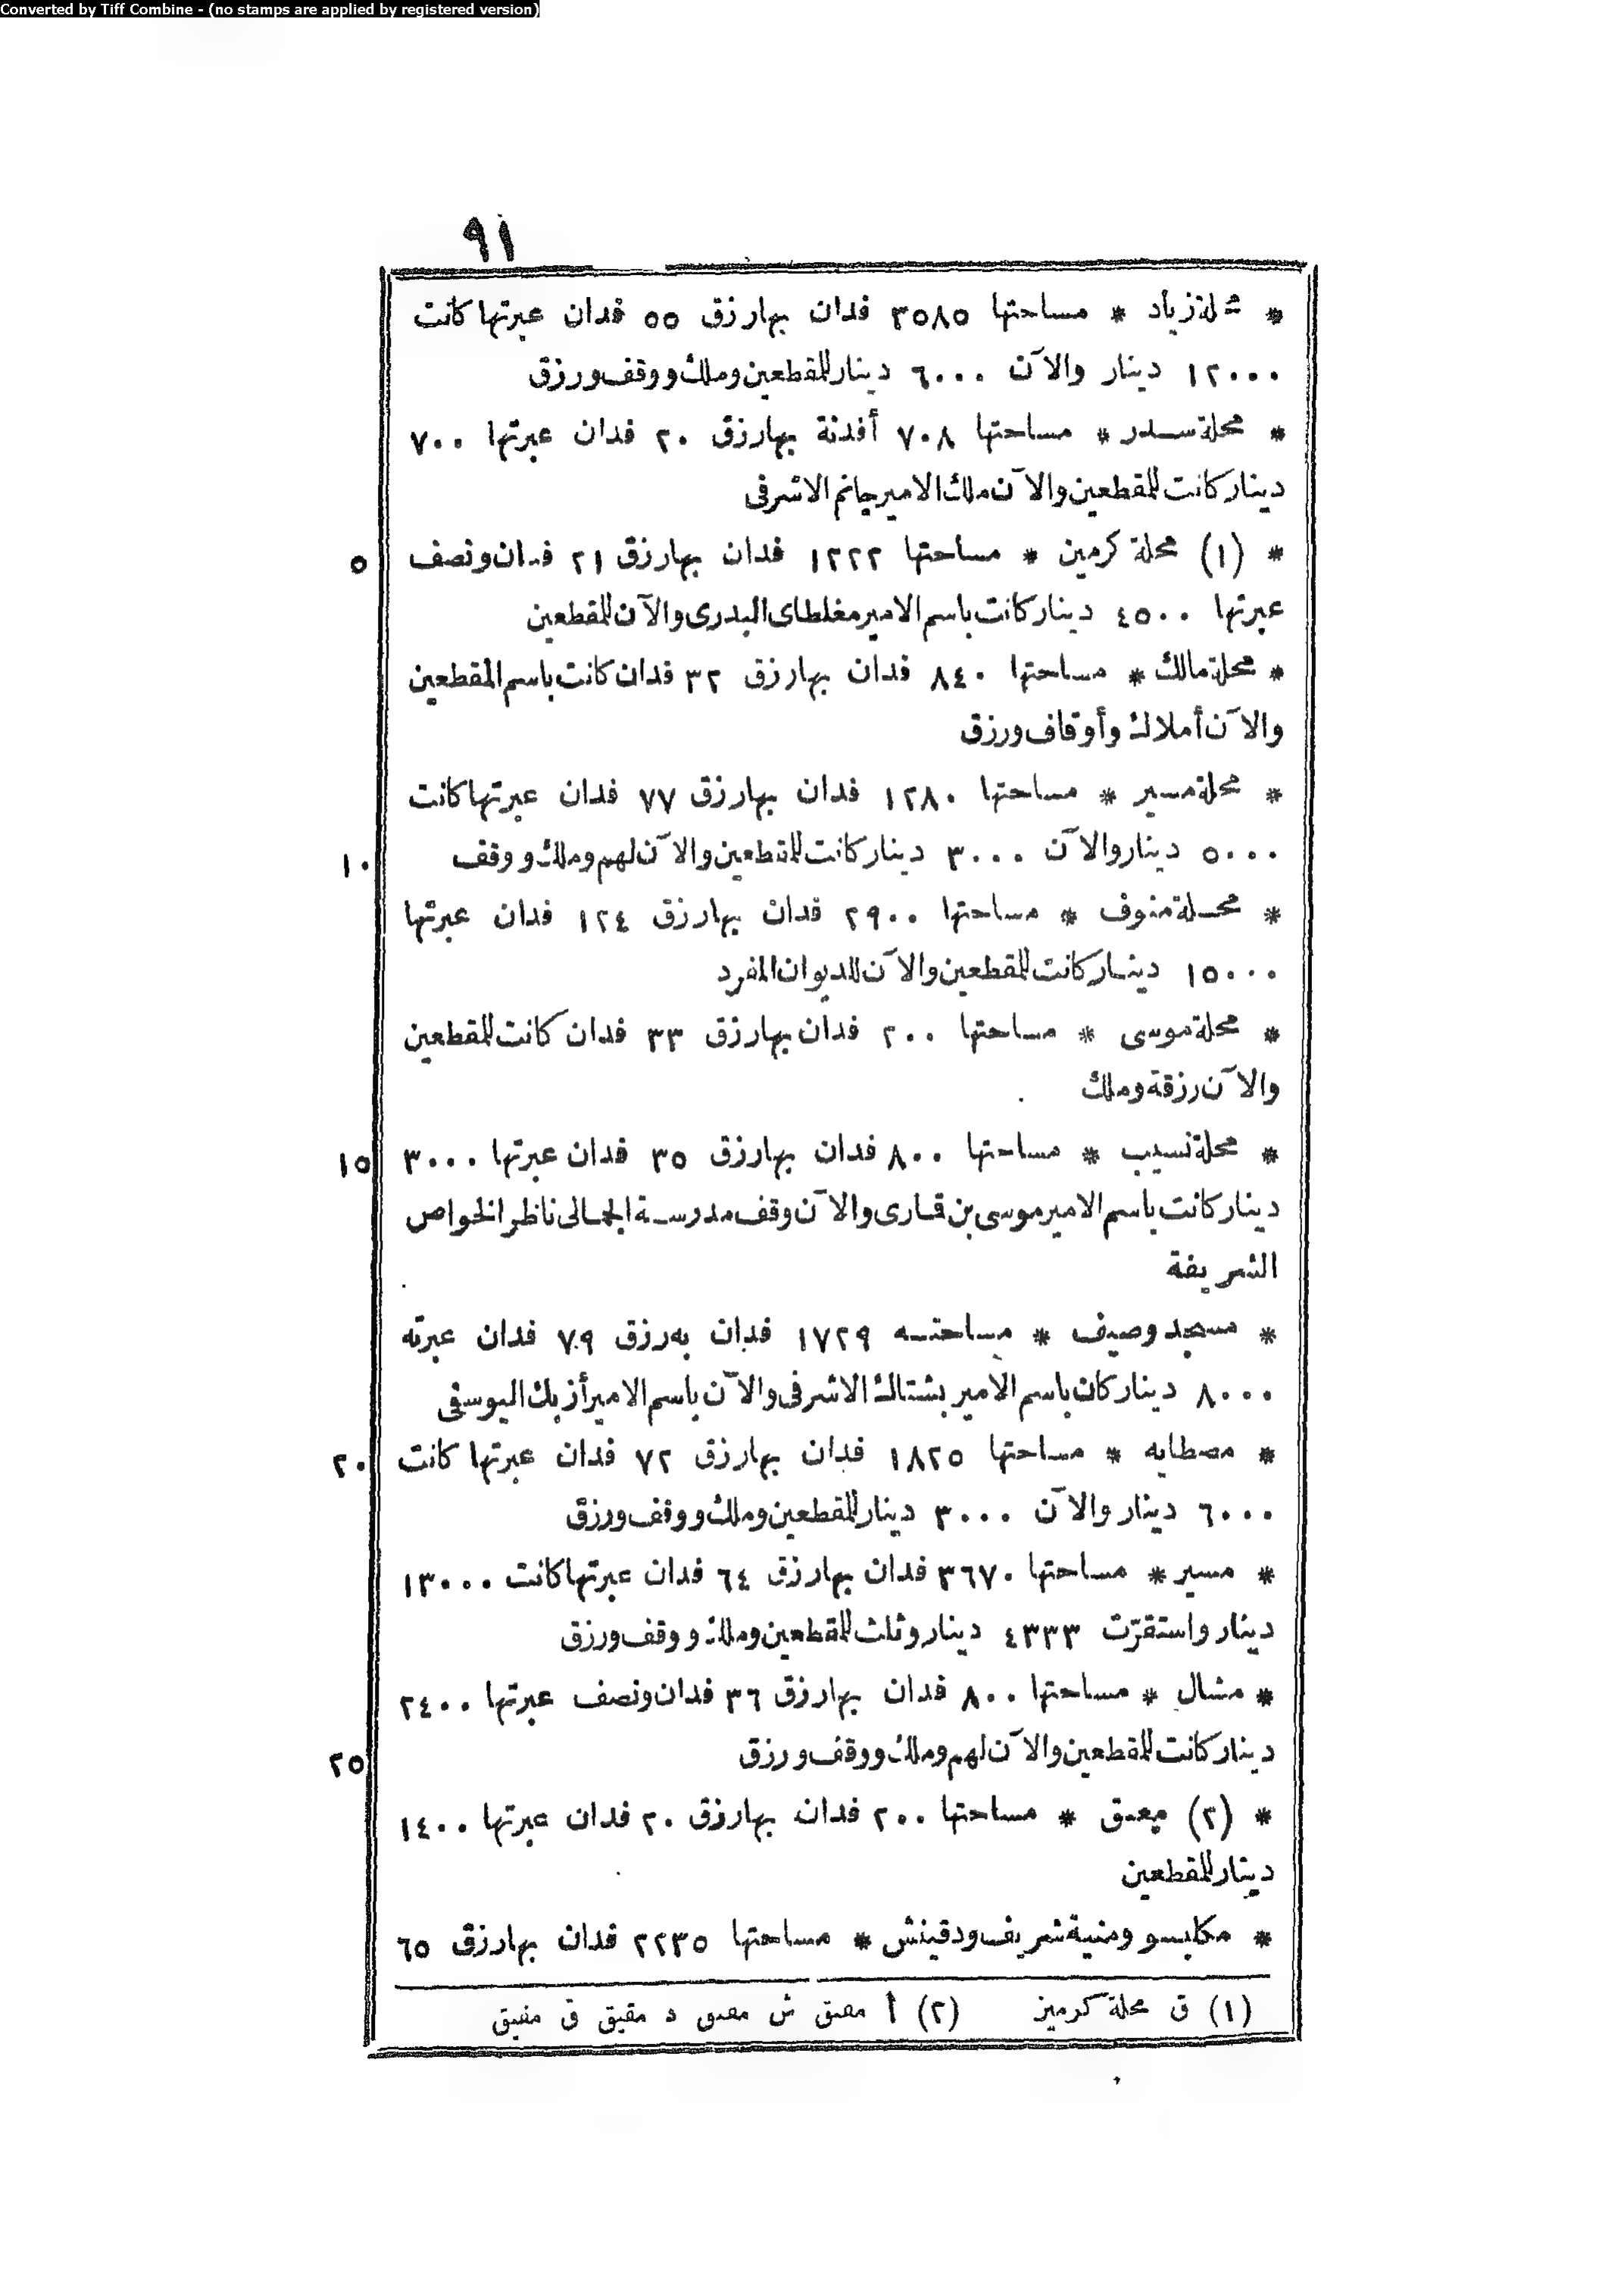 Converted by Tiff Combine - (no stamps are applied by registered version)
٩١
* محلة زياد * مساحتها ٣٥٨٥ فدان بها رزق ٥٥ فدان عبرتها كانت
١٢٠٠٠ دينار والآن ٦٠٠٠ دينار للمقطعين وملك ووقف ورزق
* محلة سدر * مساحتها ٧٠٨ أفدنة بها رزق ٢٠ فدان عبرتها ٧٠٠
دينار كانت للمقطعين والآن ملك الامير جانم الاشرفى
* (١) محلة كرمين * مساحتها ١٢٢٢ فدان بها رزق ٢١ فدان ونصف
٥
عبرتها ٤٥٠٠ دينار كانت باسم الامير مغلطاى البدرى والآن للمقطعين
* محلة مالك * مساحتها ٨٤٠ فدان بها رزق ٣٢ فدان كانت باسم المقطعين
والآن أملاك وأوقاف ورزق
* محلة مسير * مساحتها ١٢٨٠ فدان بها رزق ٧٧ فدان عبرتها كانت
٥٠٠٠ دينار والآن ٣٠٠٠ دينار كانت للمقطعين والآن لهم وملك ووقف
١٠
* محلة منوف * مساحتها ٢٩٠٠ فدان بها رزق ١٢٤ فدان عبرتها
١٥٠٠٠ دينار كانت للمقطعين والآن للديوان المفرد
* محلة موسى * مساحتها ٢٠٠ فدان بها رزق ٣٣ فدان كانت للمقطعين
والآن رزقة وملك
* محلة نسيب * مساحتها ٨٠٠ فدان بها رزق ٣٥ فدان عبرتها ٣٠٠٠
١٥
دينار كانت باسم الامير موسى بن قارى والآن وقف مدرسة الجمالى ناظر الخواص
الشريفة
* مسجد وصيف * مساحته ١٧٢٩ فدان به رزق ٧٩ فدان عبرته
٨٠٠٠ دينار كان باسم الامير بشتاك الاشرفى والآن باسم الامير أزبك اليوسفى
* مصطايه * مساحتها ١٨٢٥ فدان بها رزق ٧٢ فدان عبرتها كانت
٢٠
٦٠٠٠ دينار والآن ٣٠٠٠ دينار للمقطعين وملك ووقف ورزق
* مسير * مساحتها ٣٦٧٠ فدان بها رزق ٦٤ فدان عبرتها كانت ١٣٠٠٠
دينار واستقرّت ٤٣٣٣ دينار وثلث للمقطعين وملك ووقف ورزق
* مشال * مساحتها ٨٠٠ فدان بها رزق ٣٦ فدان ونصف عبرتها ٢٤٠٠
دينار كانت للمقطعين والآن لهم وملك ووقف ورزق
٢٥
* (٢) * مساحتها ٢٠٠ فدان بها رزق ٢٠ فدان عبرتها ١٤٠٠
دينار للمقطعين
* ومنية شريف ودقينش * مساحتها ٢٢٣٥ فدان بها رزق ٦٥
(١) ق محلة كرميز (٢) أ ش د مقيق ق مفيق